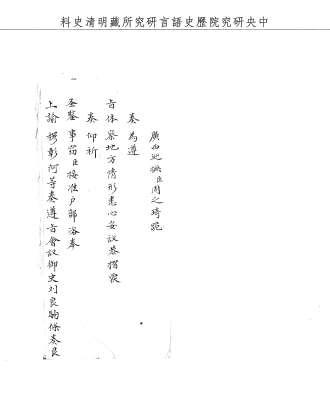 中央研究院歷史語言研究所藏明清史料
廣西巡撫臣周之琦跪
奏為遵
旨体察地方情形悉心妥議恭摺覆
奏仰祈
圣鑒事窃臣接准户部咨奉
上諭穆彰阿等奏遵旨會議御史刘良駒條奏良